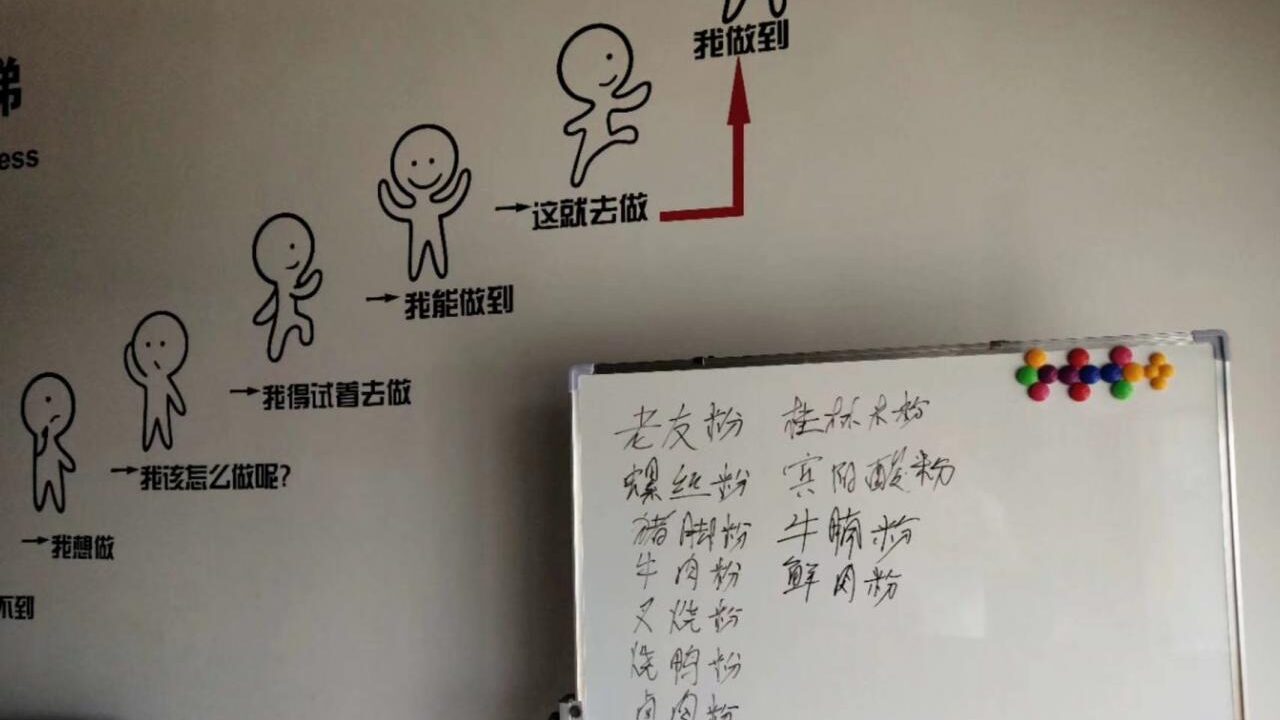 梯
ess
我做到
这就去做
我能做到
我得试着去做
我该怎么做呢?
我想做
不到
老友粉 桂林米粉
螺丝粉 宾阳酸粉
猪脚粉 牛腩粉
牛肉粉 鲜肉粉
叉烧粉
烧鸭粉
卤肉粉